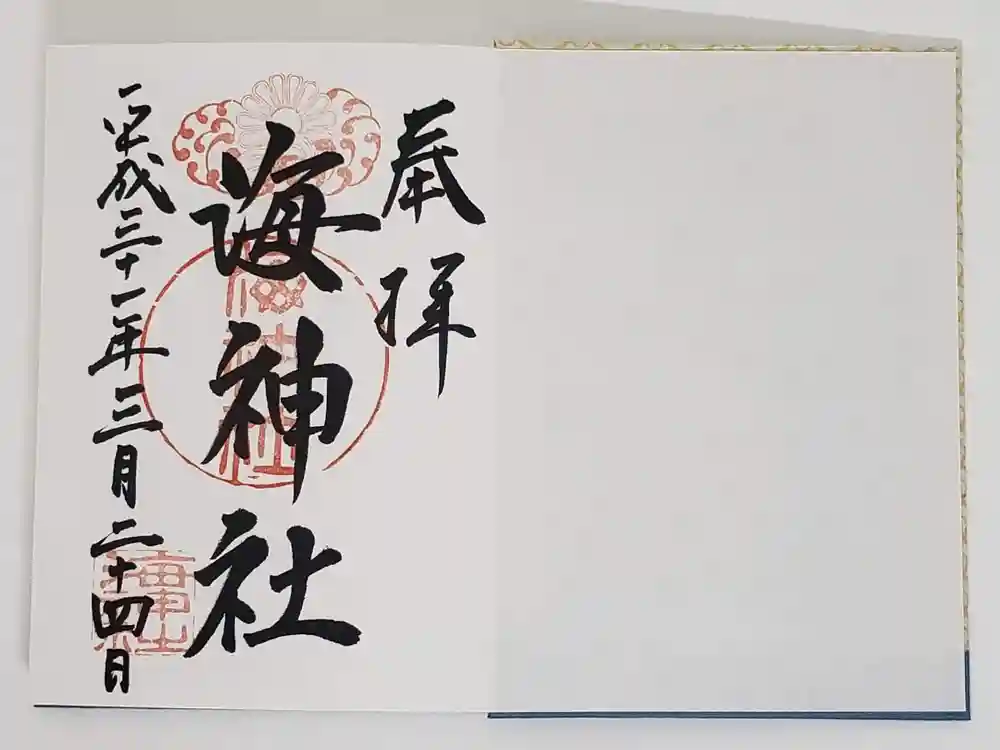 奉拝
海神社
平成三十一年三月二十四日